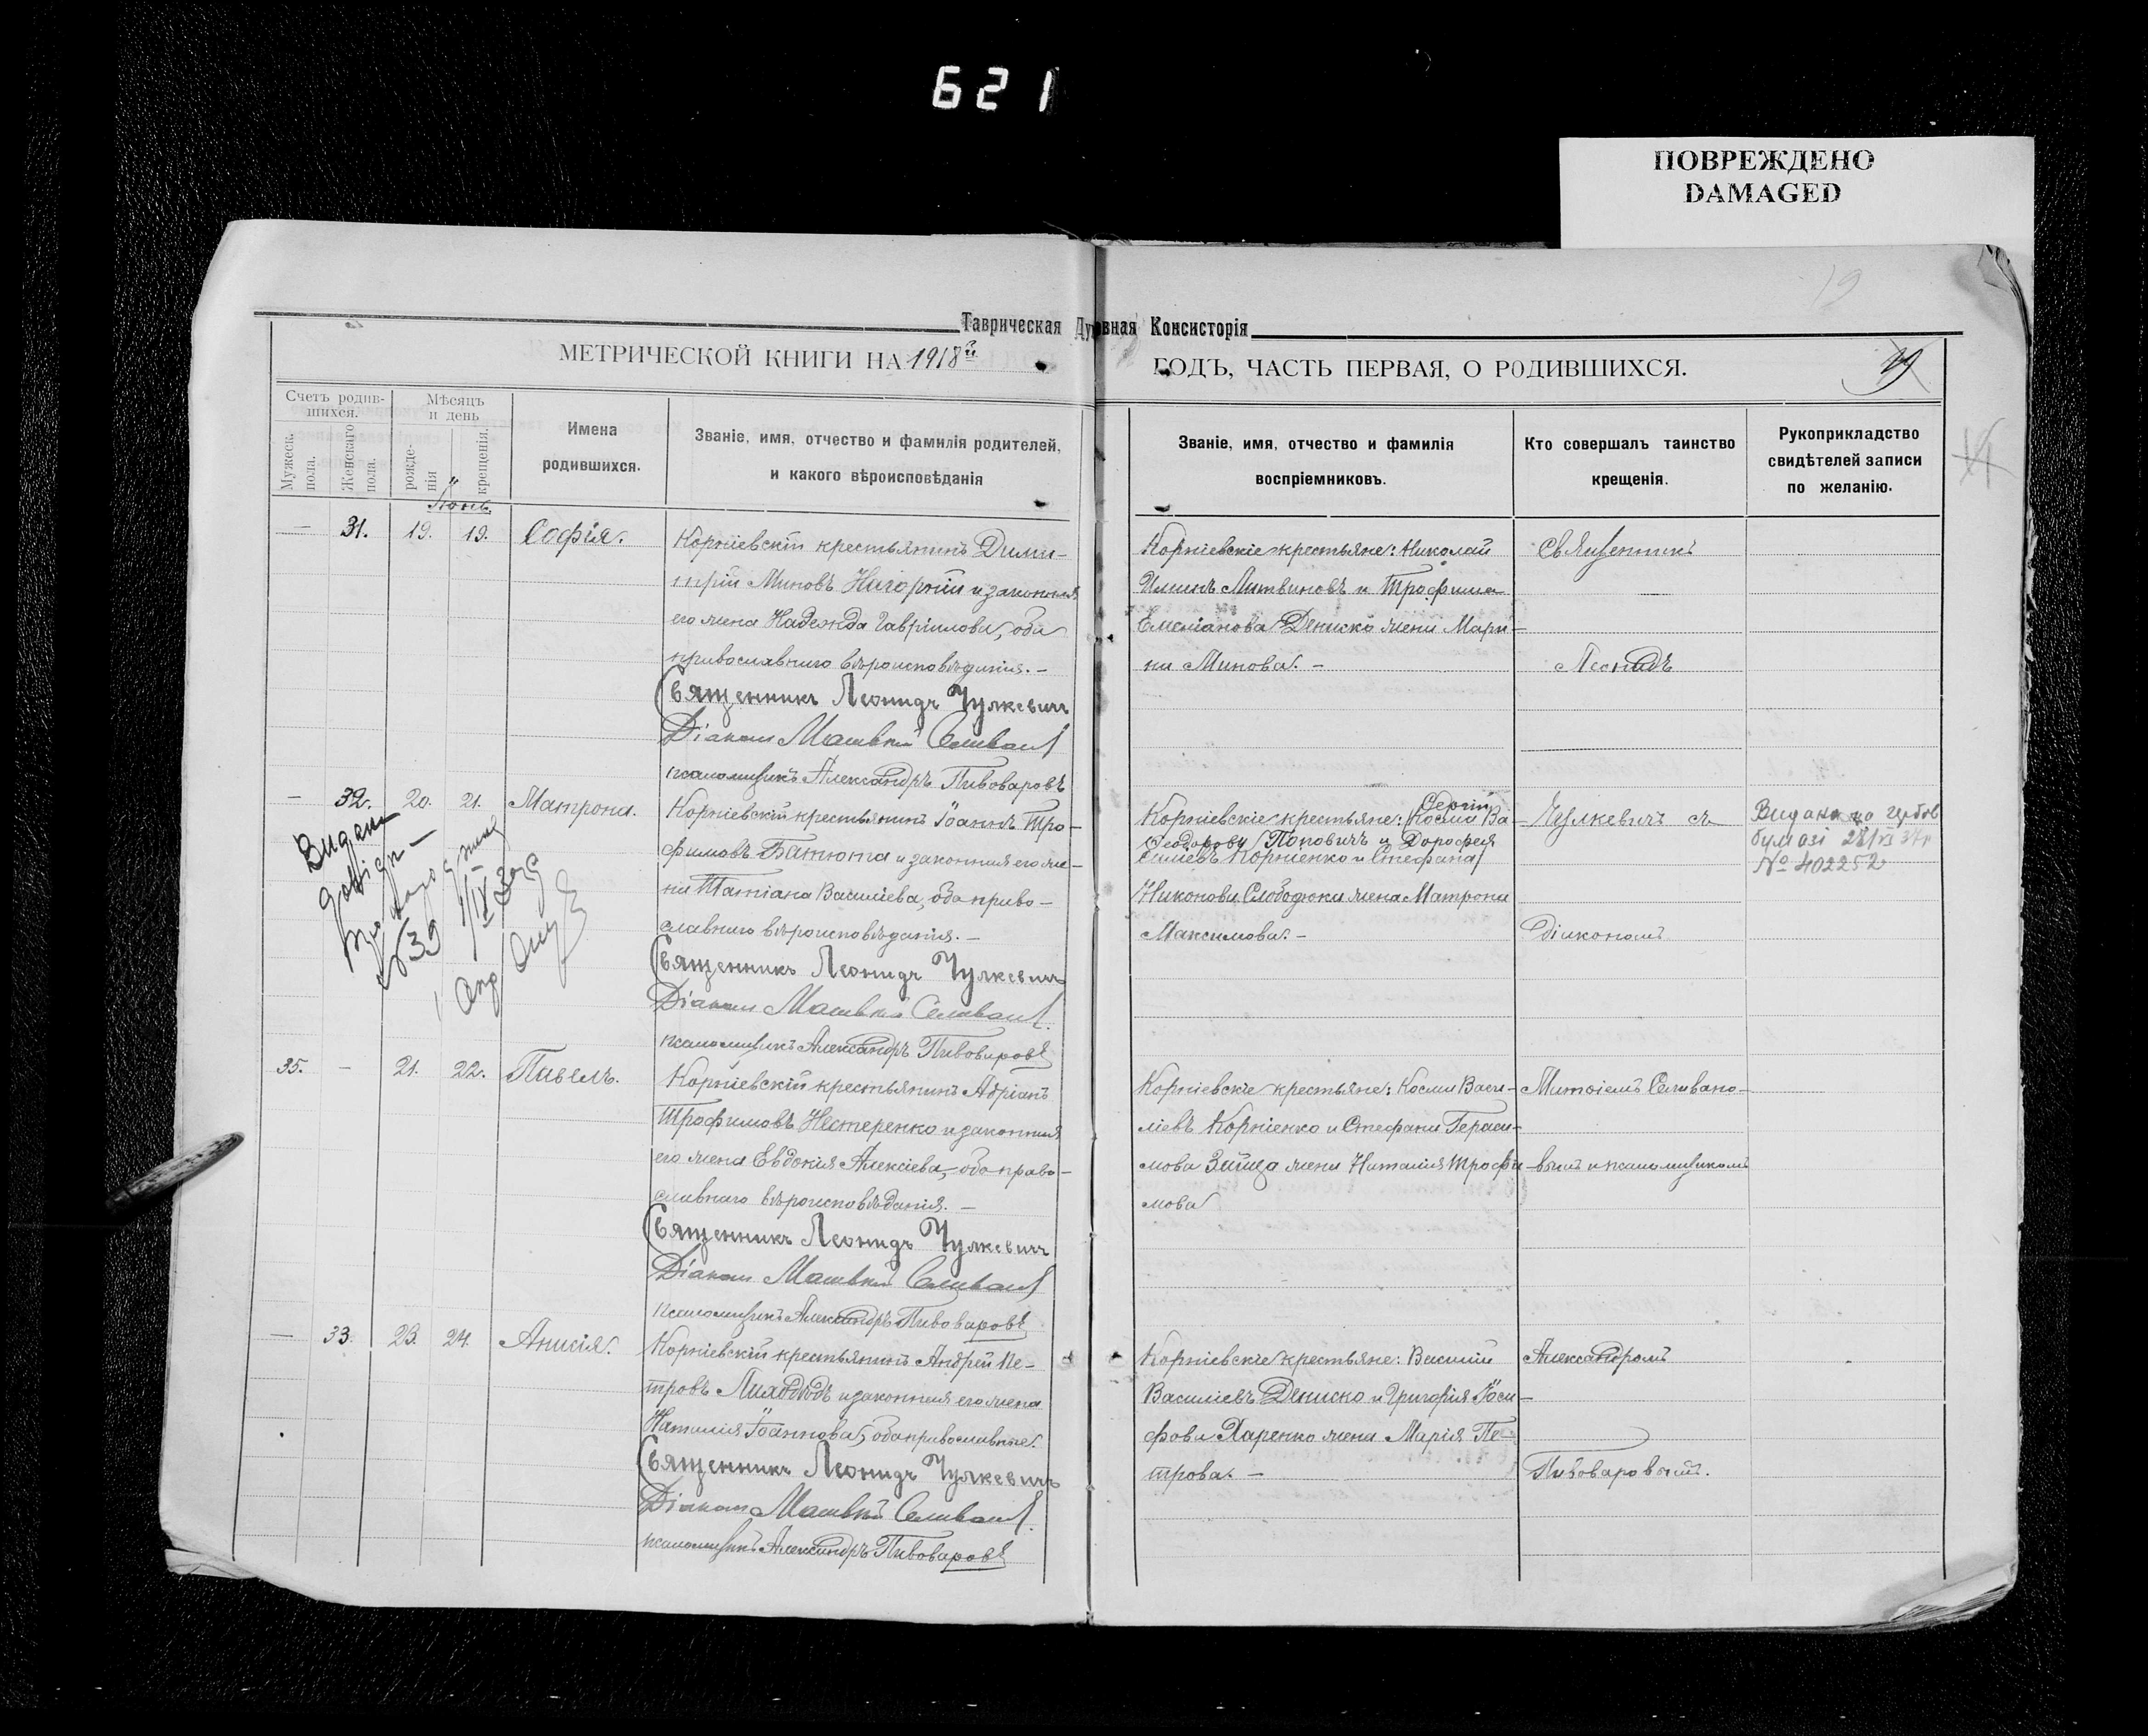 621
ПОВРЕЖДЕНО
DAMAGED
19
Таврическая Духовная Консисторія
МЕТРИЧЕСКОЙ КНИГИ НА 1918й ГОДЪ, ЧАСТЬ ПЕРВАЯ, О РОДИВШИХСЯ.
Счетъ родив-
шихся.
Мужеск. пола.
Женскаго пола.
Мѣсяцъ
и день
рожде-
нія
крещенія.
Имена
родившихся.
Званіе, имя, отчество и фамилія родителей,
и какого вѣроисповѣданія
Званіе, имя, отчество и фамилія
воспріемниковъ.
Кто совершалъ таинство
крещенія.
Рукоприкладство
свидѣтелей записи
по желанію.
— 31. 19. 19. Софія.
Корніевскій крестьянинъ Дими-
трій Миновъ Нагорній и законная
его жена Надежда Гавріилова, оба
православнаго вѣроисповѣданія. —
Священникъ Леонидъ Чулкевичъ
Діаконъ Матвѣй Селиванов
псаломщикъ Александръ Пивоваровъ
Корніевскіе крестьяне: Николай
Литвиновъ и Трофима
Емеліанова Дениско жена Мари-
на Минова. —
Священникъ
Леонидъ
— 32. 20. 21. Матрона.
Корніевскій крестьянинъ Іоаннъ Тро-
фимовъ Батюта и законная его же-
на Татіана Василіева, оба право-
славнаго вѣроисповѣданія. —
Священникъ Леонидъ Чулкевичъ
Діаконъ Матвѣй Селиванов
псаломщикъ Александръ Пивоваровъ
Видана
№ 39
Сергій
Корніевскіе крестьяне: Косма Ва-
Феодоровъ Поповичъ и Дорофея
силіевъ Корніенко и Стефана
Никонова Слободюка жена Матрона
Максимова. —
Чулкевичъ съ
діакономъ
Видана на гербов
бумазі
№ 402252
35. — 21. 22. Павелъ.
Корніевскій крестьянинъ Адріанъ
Трофимовъ Нестеренко и законная
его жена Евдокія Алексіева, оба право-
славнаго вѣроисповѣданія. —
Священникъ Леонидъ Чулкевичъ
Діаконъ Матвѣй Селиванов
псаломщикъ Александръ Пивоваровъ
Корніевскіе крестьяне: Косма Васи-
ліевъ Корніенко и Стефана Гераси-
мова Зайца жена Наталія Трофи-
мова
Матѳіемъ Селивано-
вымъ и псаломщикомъ
— 33. 23. 24. Анисія.
Корніевскій крестьянинъ Андрей Пе-
тровъ Лиходѣдъ и законная его жена
Наталія Іоаннова, оба православные.
Священникъ Леонидъ Чулкевичъ
Діаконъ Матвѣй Селиванов
псаломщикъ Александръ Пивоваровъ
Корніевскіе крестьяне: Василій
Василіевъ Дениско и Григорія Іоси-
фова Харенко жена Марія Пе-
трова. —
Александромъ
Пивоваровымъ.